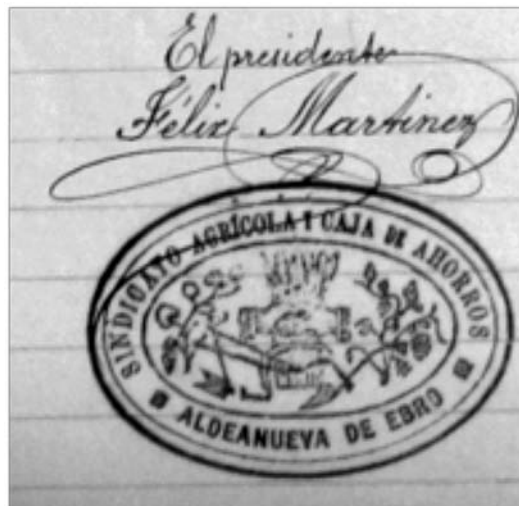 El presidente
Félix Martinez
SINDICATO AGRÍCOLA I CAJA DE AHORROS
ALDEANUEVA DE EBRO